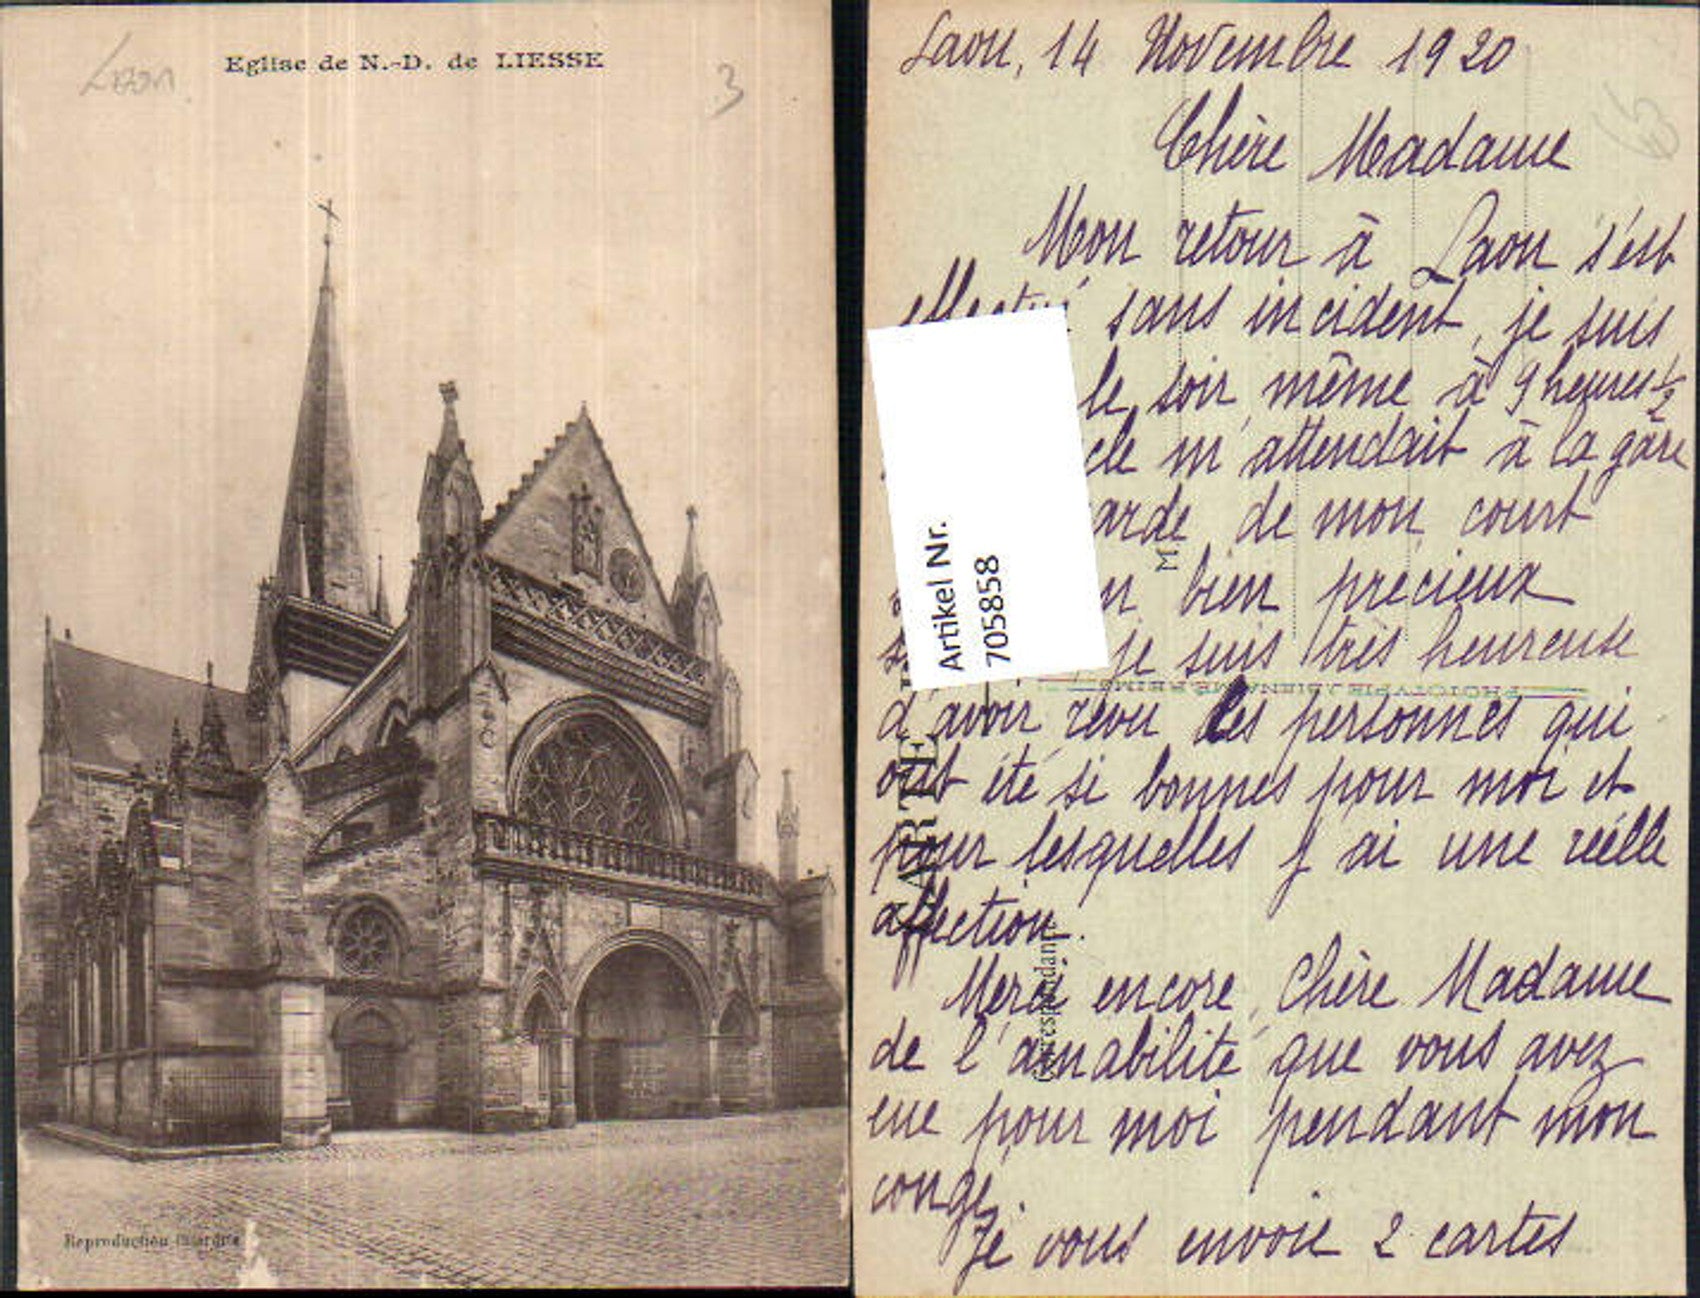 Laon
Eglise de N.-D. de LIESSE
3
Reproduction interdite
Laon, 14 Novembre 1920
Chère Madame
Mon retour à Laon s'est
effectué sans incident, je suis
le soir même à 9 heures 1/2
cle m'attendait à la gare
arde de mon court
n bien précieux
je suis très heureuse
d'avoir revu les personnes qui
ont été si bonnes pour moi et
pour lesquelles j'ai une réelle
affection.
Merci encore, Chère Madame
de l'amabilité que vous avez
eue pour moi pendant mon
congé,
Je vous envoie 2 cartes
Artikel Nr.
705858
PHOTOTYPIE J. BIENAIMÉ REIMS
CARTE
Correspondance
M